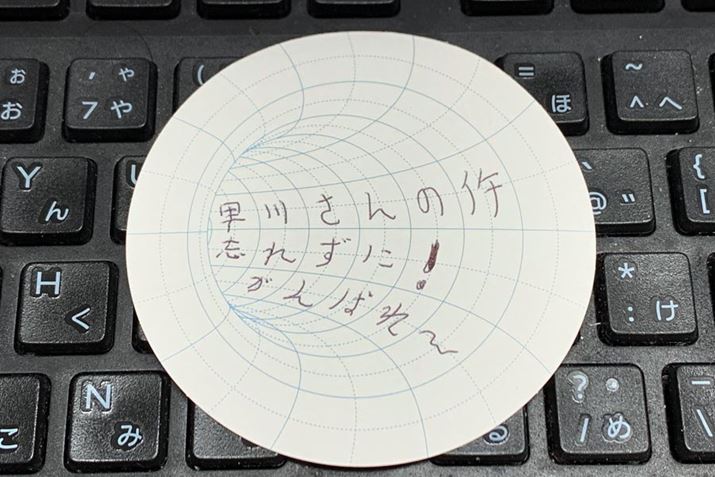 ぉ
お
' ゃ
7 や
(
=
ほ
~
^ へ
早川さんの件
忘れずに!
がんばれ〜
Y
ん
`
@ ゛
{
[
H
く
*
: け
N
み
こ
る
? ・
/ め
\